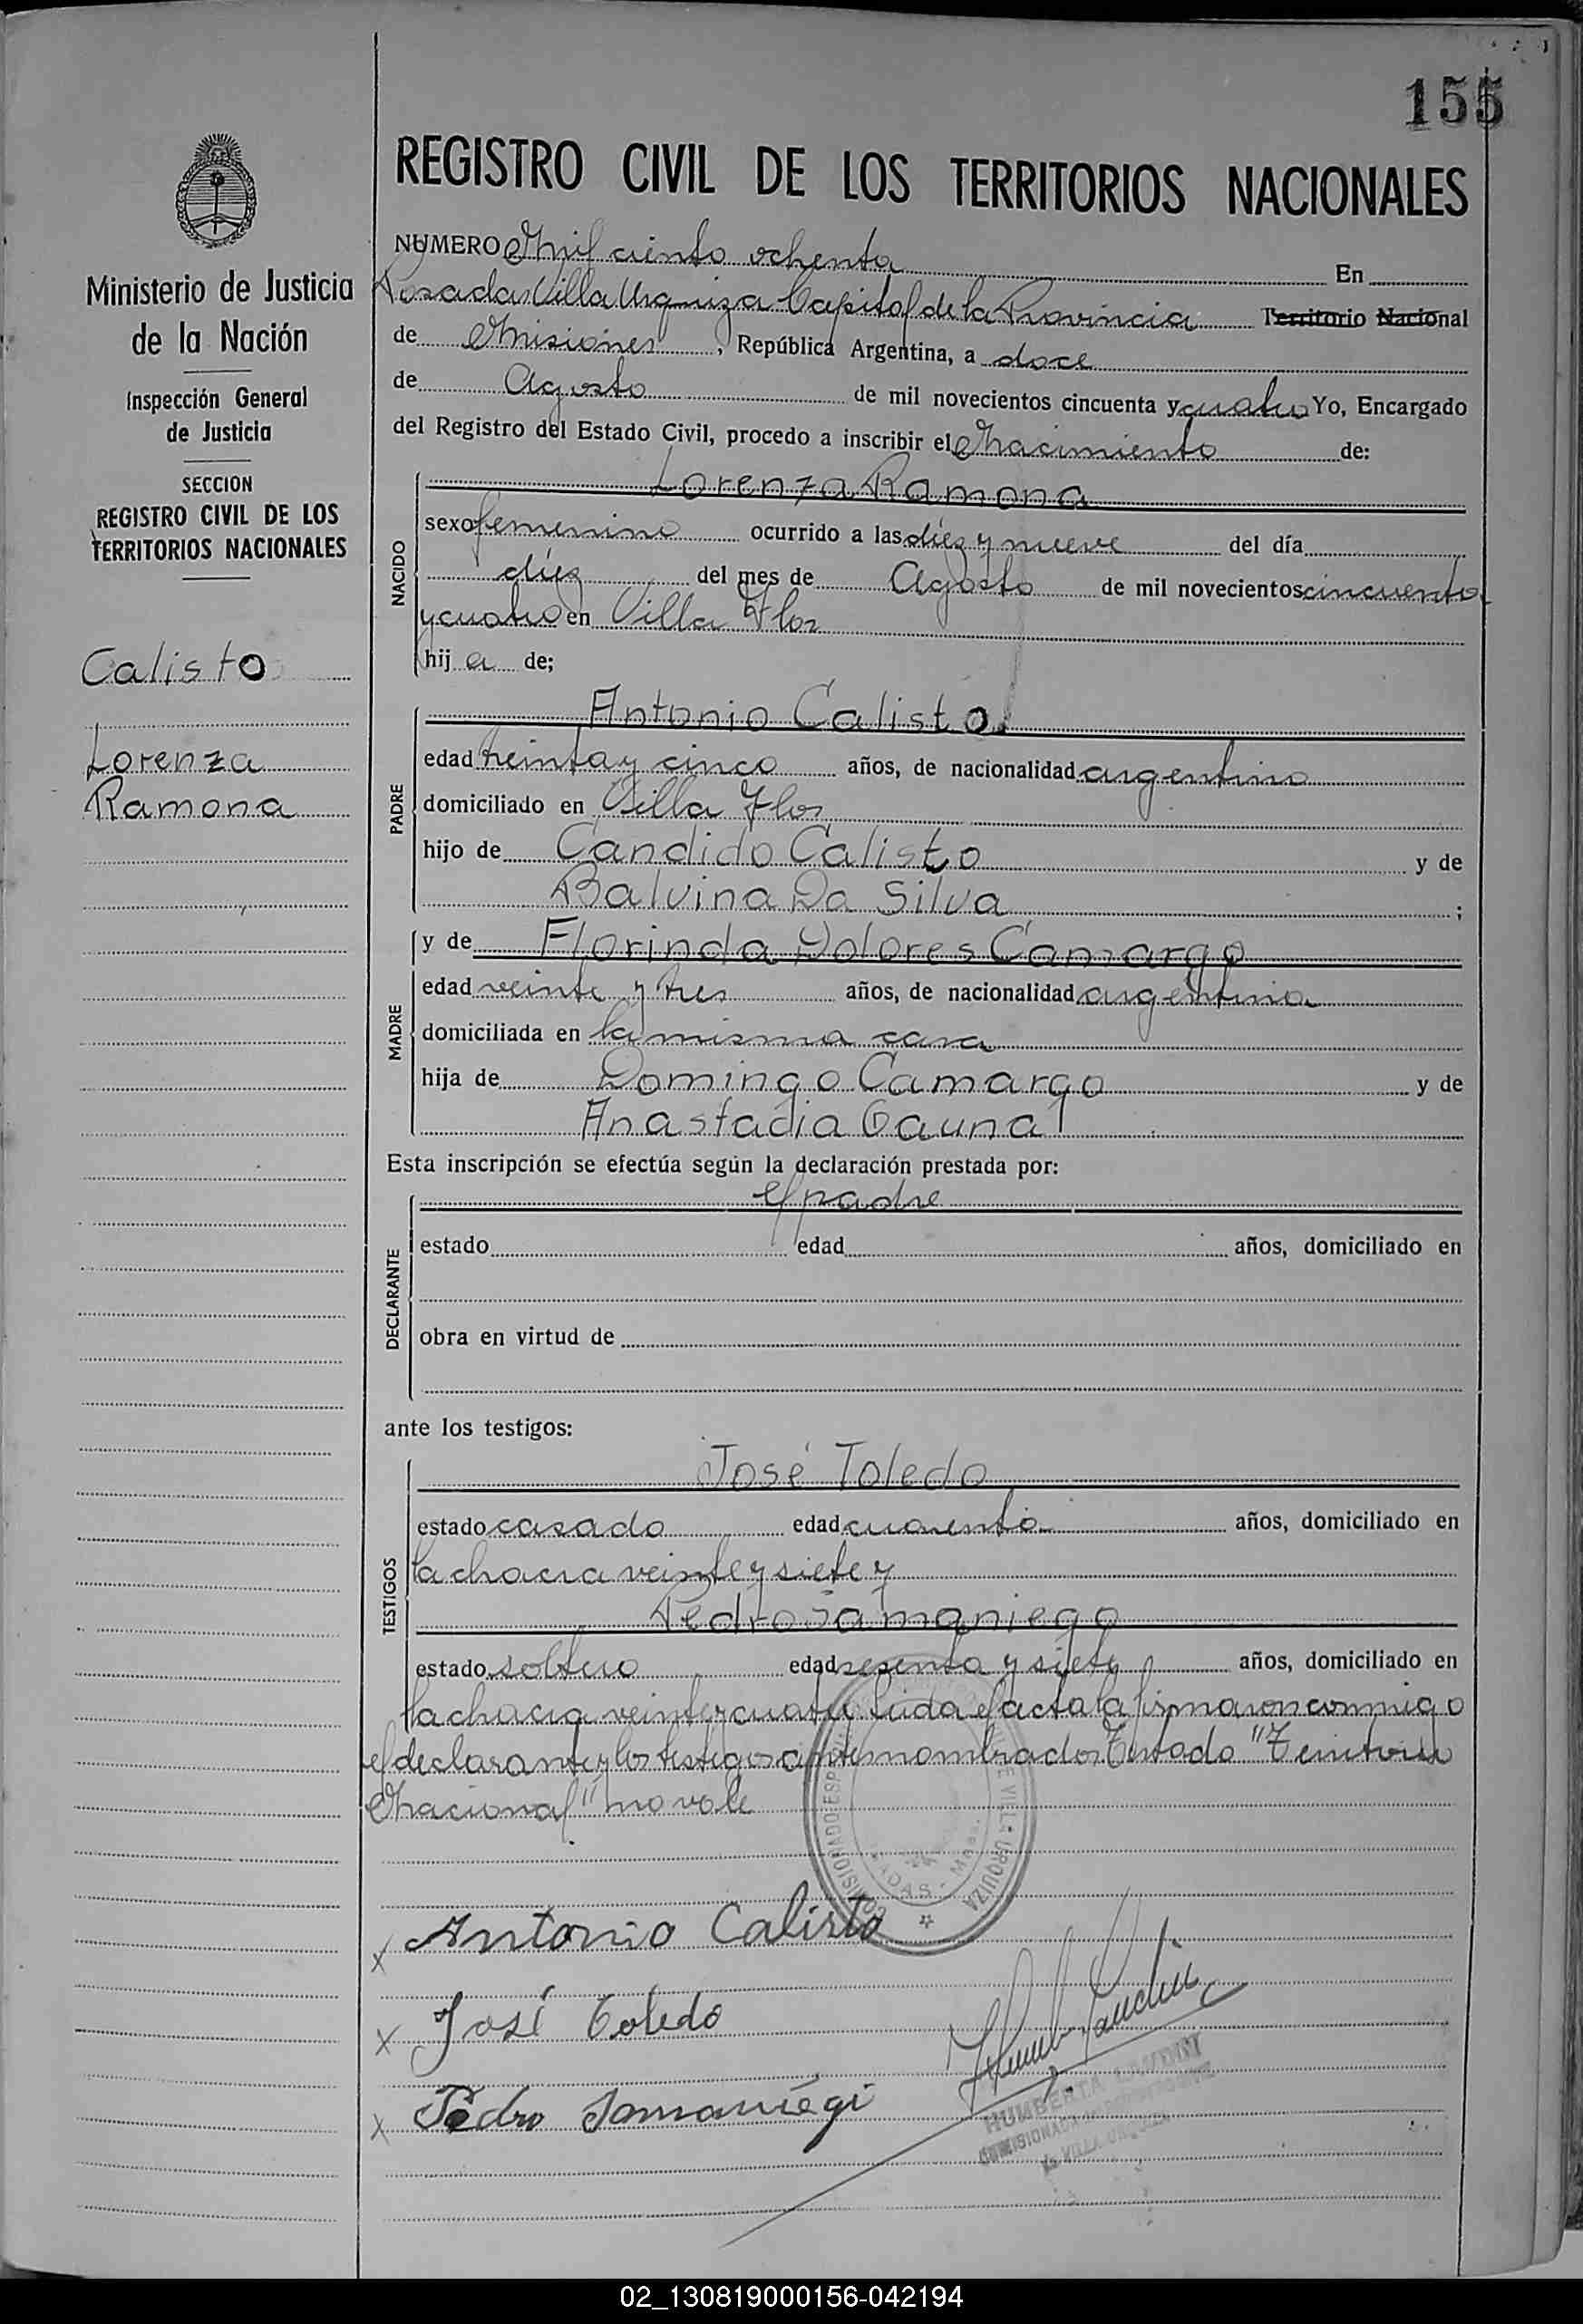 155
REGISTRO CIVIL DE LOS TERRITORIOS NACIONALES
Ministerio de Justicia
de la Nación
Inspección General
de Justicia
SECCION
REGISTRO CIVIL DE LOS
TERRITORIOS NACIONALES
Calisto
Lorenza
Ramona
NUMERO Mil ciento ochenta En
Posadas Villa Urquiza Capital de la Provincia Territorio Nacional
de Misiones, República Argentina, a doce
de Agosto de mil novecientos cincuenta y cuatro Yo, Encargado
del Registro del Estado Civil, procedo a inscribir el Nacimiento de:
NACIDO
Lorenza Ramona
sexo femenino ocurrido a las diez y nueve del día
diez del mes de Agosto de mil novecientos cincuenta
y cuatro en Villa Flor
hij a de;
PADRE
Antonio Calisto
edad treinta y cinco años, de nacionalidad argentino
domiciliado en Villa Flor
hijo de Candido Calisto y de
Balvina Da Silva ;
MADRE
y de Florinda Dolores Camargo
edad veinte y tres años, de nacionalidad argentina
domiciliada en la misma casa
hija de Domingo Camargo y de
Anastacia Gauna
Esta inscripción se efectúa según la declaración prestada por:
DECLARANTE
el padre
estado edad años, domiciliado en
obra en virtud de
ante los testigos:
TESTIGOS
José Toledo
estado casado edad cuarenta años, domiciliado en
la chacra veinte y siete y
Pedro Samaniego
estado soltero edad sesenta y siete años, domiciliado en
la chacra veinte y cuatro leida el acta la firmaron conmigo
el declarante y los testigos antes nombrados Testado "Territorio
Nacional" no vale
VILLA URQUIZA
Antonio Calisto
José Toledo
Pedro Samaniego
02_130819000156-042194